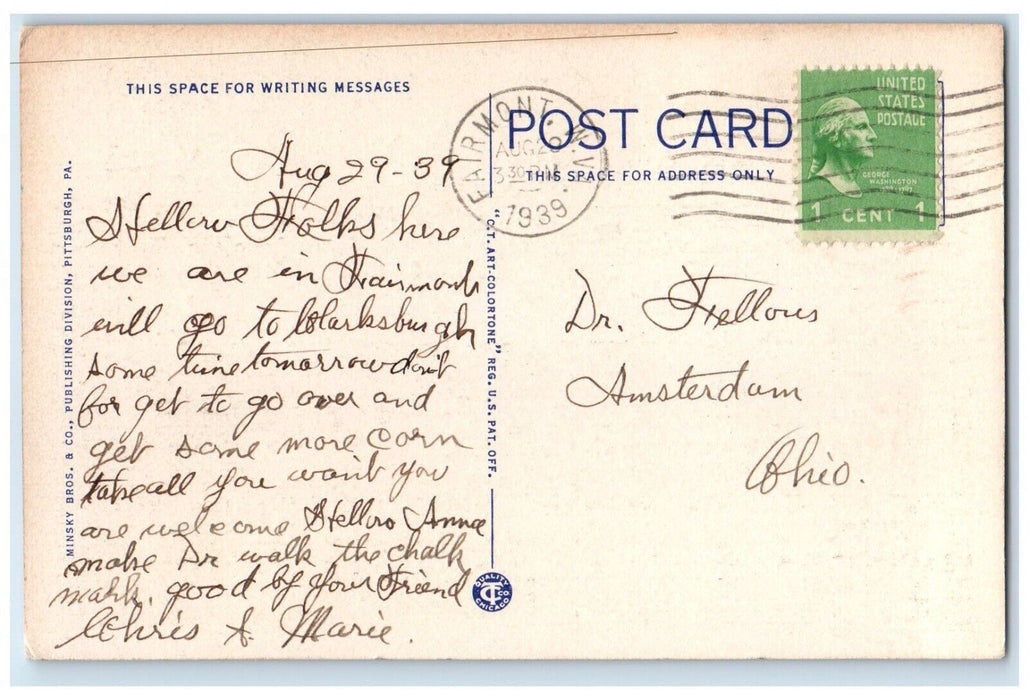 THIS SPACE FOR WRITING MESSAGES
Aug 29-39
Hellow Folks here
we are in Fairmont
will go to Clarksburgh
some time tomorrow don't
for get to go over and
get some more corn
take all you want you
are welcome Hello Anna
make Dr walk the chalk
mark. good by your Friend
Chris & Marie.
MINSKY BROS. & CO., PUBLISHING DIVISION, PITTSBURGH, PA.
"C.T. ART-COLORTONE" REG. U.S. PAT. OFF.
QUALITY
CT CO
CHICAGO
FAIRMONT. W.VA.
AUG
3 30 PM
1939
POST CARD
THIS SPACE FOR ADDRESS ONLY
UNITED
STATES
POSTAGE
GEORGE
WASHINGTON
1 CENT 1
Dr. Fellows
Amsterdam
Ohio.